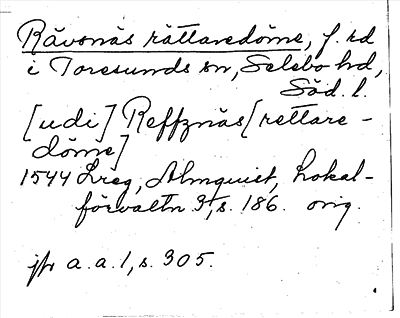 Rävsnäs rättaredöme, f. rd
i Toresunds sn, Selebo hd,
Söd. l.
[udi] Reffznäs [rettare-
döme]
1544 Lreg, Almquist, Lokal-
förvaltn 3, s. 186. orig.
jfr a.a. 1, s. 305.